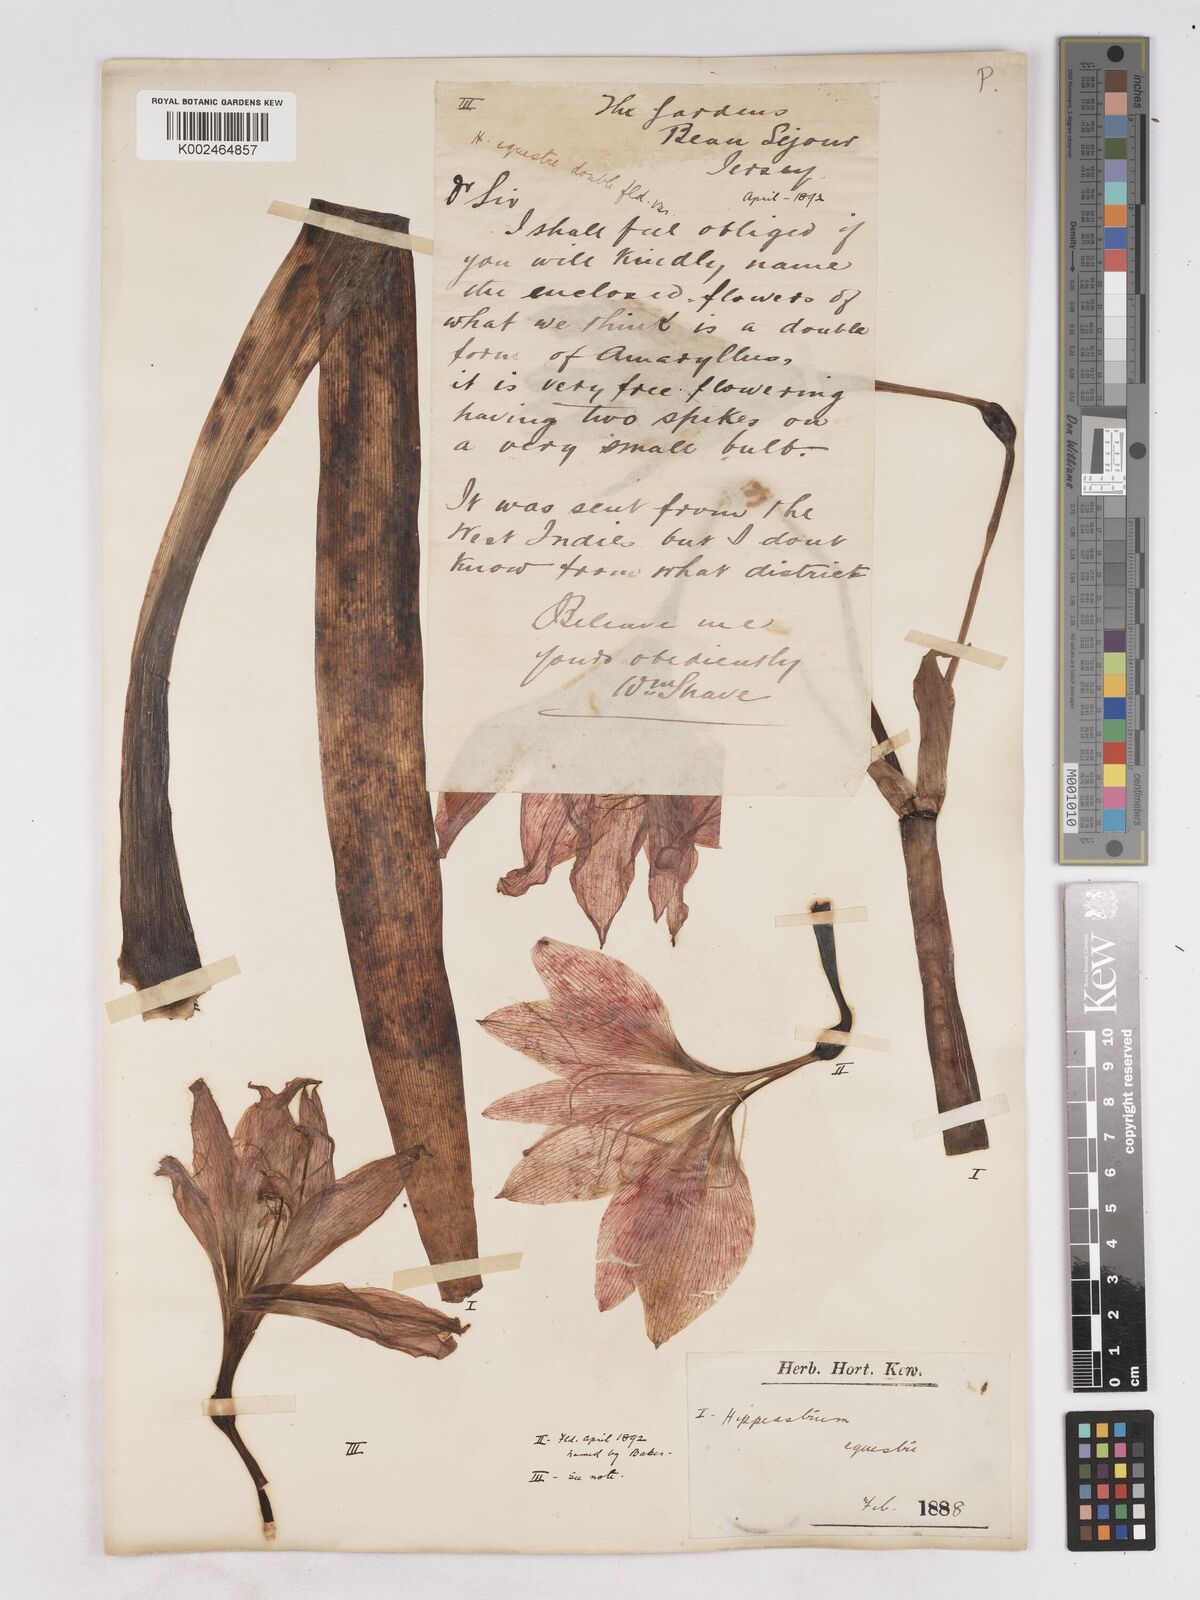 ROYAL BOTANIC GARDENS KEW
K002464857
P.
III
The Gardens
Beau Séjour
Jersey
April - 1892
H. equestre double fld. var.
Dr Sir
I shall feel obliged if
you will kindly name
the enclosed flowers of
what we think is a double
form of Amaryllus,
it is very free flowering
having two spikes on
a very small bulb.-
It was sent from the
West Indies but I dont
know from what district
Beleave me
yours obediently
Wm Shave
I
II
I
III
II - Fld. April 1892
named by Baker -
III - see note.
Herb. Hort. Kew.
I - Hippeastrum
equestre
Feb. 1888
inches
centimetres
Density
Don Williams
M001010
Kew
Royal Botanic Gardens
copyright reserved
0 1 2 3 4 5 6 7 8 9 10
cm